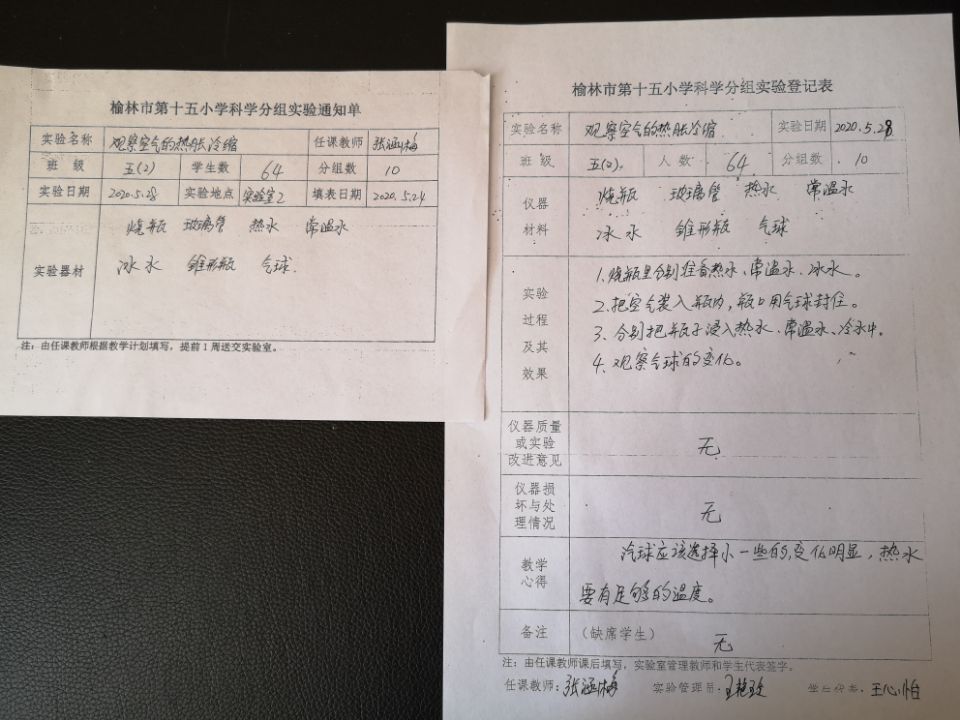 榆林市第十五小学科学分组实验通知单
实验名称 观察空气的热胀冷缩 任课教师 张涵梅
班 级 五(2) 学生数 64 分组数 10
实验日期 2020.5.28 实验地点 实验室2 填表日期 2020.5.24
烧瓶 玻璃管 热水 常温水
实验器材 冰水 锥形瓶 气球.
注：由任课教师根据教学计划填写，提前1周送交实验室。
榆林市第十五小学科学分组实验登记表
实验名称 观察空气的热胀冷缩 实验日期 2020.5.28
班 级 五(2). 人 数 64 分组数 10
仪器 烧瓶 玻璃管 热水 常温水
材料 冰水 锥形瓶 气球
1.烧瓶里分别装有热水、常温水、冰水。
实验 2.把空气装入瓶内，瓶口用气球封住。
过程 3、分别把瓶子浸入热水、常温水、冷水中。
及其 4.观察气球的变化。
效果
仪器质量
或实验 无
改进意见
仪器损
坏与处 无
理情况
汽球应该选择小一些的,变化明显，热水
教学
心得 要有足够的温度。
备注 （缺席学生） 无
注：由任课教师课后填写，实验室管理教师和学生代表签字。
任课教师：张涵梅 实验管理员： 学生代表：王心怡